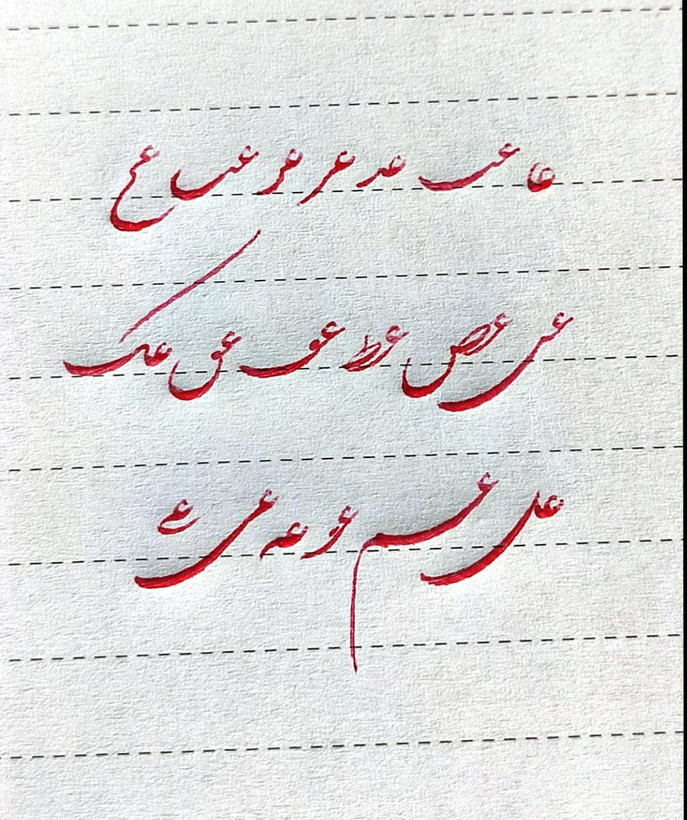 عا عب عد عر عر عبا عح
عس عص عط عف عق عک
عل عم عو عه عی عے